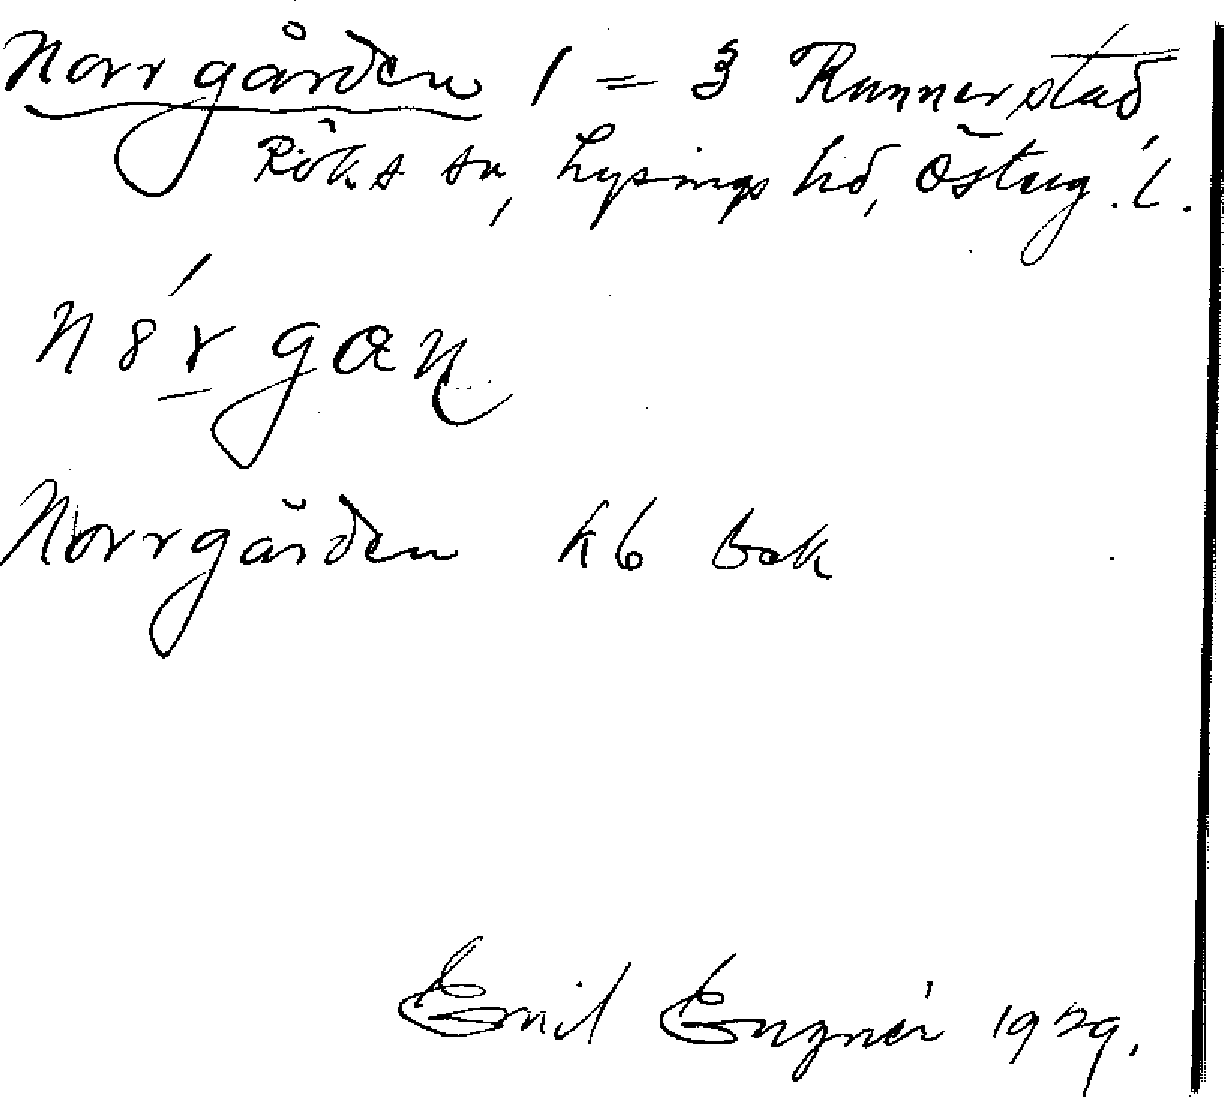 Norrgården 1 = 3 Runnerstad
Röks sn, Lysings hd, Österg. l.
Norrgården kb bok
Emil Engnér 1929.